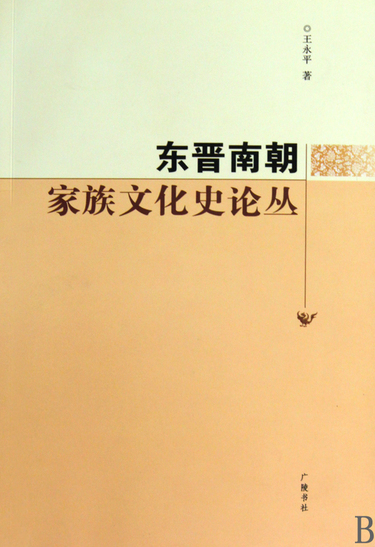 ◎王永平 著
东晋南朝
家族文化史论丛
广陵书社
B